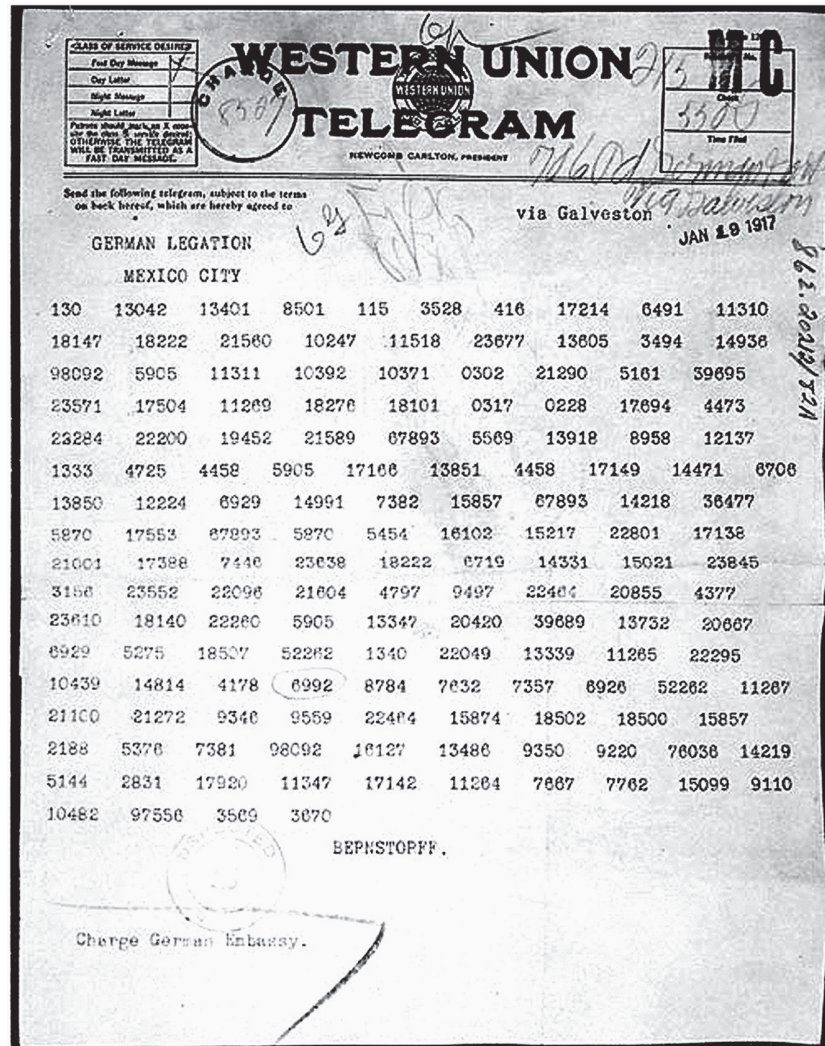 CLASS OF SERVICE DESIRED
Fast Day Message
Day Letter
Night Message
Night Letter
Patrons should mark an X oppo-
site the class of service desired;
OTHERWISE THE TELEGRAM
WILL BE TRANSMITTED AS A
FAST DAY MESSAGE.
CHARGE
WESTERN UNION
WESTERN UNION
TELEGRAM
NEWCOMB CARLTON, PRESIDENT
No.
Check
Time Filed
Send the following telegram, subject to the terms
on back hereof, which are hereby agreed to
via Galveston
JAN 19 1917
GERMAN LEGATION
MEXICO CITY
130 13042 13401 8501 115 3528 416 17214 6491 11310
18147 18222 21560 10247 11518 23677 13605 3494 14936
98092 5905 11311 10392 10371 0302 21290 5161 39695
23571 17504 11269 18276 18101 0317 0228 17694 4473
23284 22200 19452 21589 67893 5569 13918 8958 12137
1333 4725 4458 5905 17166 13851 4458 17149 14471 6706
13850 12224 6929 14991 7382 15857 67893 14218 36477
5870 17553 67893 5870 5454 16102 15217 22801 17138
21001 17388 7446 23638 18222 6719 14331 15021 23845
3156 23552 22096 21604 4797 9497 22464 20855 4377
23610 18140 22260 5905 13347 20420 39689 13732 20667
6929 5275 18507 52262 1340 22049 13339 11265 22295
10439 14814 4178 6992 8784 7632 7357 6926 52262 11267
21100 21272 9346 9559 22464 15874 18502 18500 15857
2188 5376 7381 98092 16127 13486 9350 9220 76036 14219
5144 2831 17920 11347 17142 11264 7667 7762 15099 9110
10482 97556 3569 3670
BERNSTORFF.
Charge German Embassy.